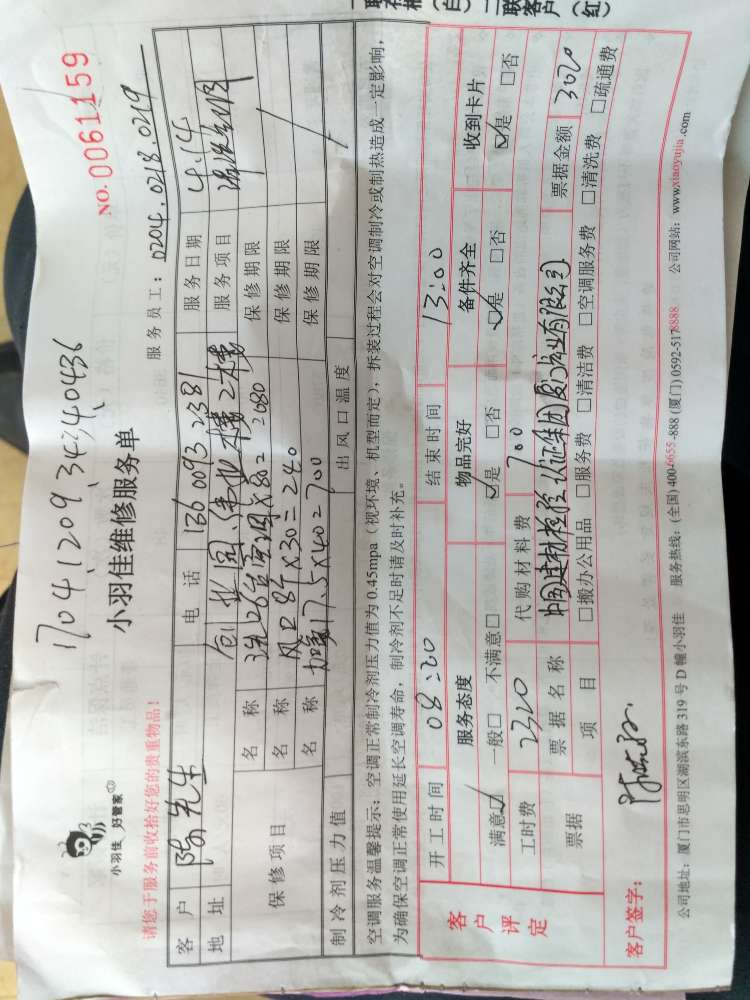 170412093440436
小羽佳 好管家
小羽佳维修服务单
NO. 0061159
请您于服务前收拾好您的贵重物品!
服务员工: 0204.0218.0219
客户 陈先生 电话 13600932381 服务日期 4.14
地址 创业园伟业楼2楼 服务项目
保修项目
名称 洗26台空调×80=2080 保修期限
名称 风口8个×30=240 保修期限
名称 加氟17.5×40=700 保修期限
制冷剂压力值 出风口温度
空调服务温馨提示: 空调正常制冷剂压力值为 0.45mpa (视环境、机型而定), 拆装过程会对空调制冷或制热造成一定影响,
为确保空调正常使用延长空调寿命, 制冷剂不足时请及时补充。
客户评定
开工时间 08:20 结束时间 13:00
服务态度 物品完好 备件齐全 收到卡片
满意☑ 一般□ 不满意□ ☑是 □否 ☑是 □否 ☑是 □否
工时费 2320 代购材料费 700
票据 票据名称 中国建材检验认证集团厦门宏业有限公司 票据金额 3020
项目 □搬办公用品 □服务费 □清洁费 □空调服务费 □清洗费 □疏通费
客户签字:
公司地址: 厦门市思明区湖滨东路 319 号 D 幢小羽佳 服务热线: (全国) 400-4655-888 (厦门) 0592-5178888 公司网站: www.xiaoyujia.com
联存根 (白) 二联客户 (红)